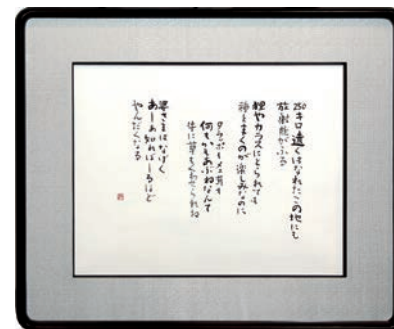 250キロ遠くはなれたこの地にも
放射能がふる
狸やカラスにとられても
種をまくのが楽しみなのに
タンポポもメェ草も
何もかもあぶねなんて
牛に草もくわせられね
婆さまはなげく
あーあ知ればしーるほど
やんだくなる